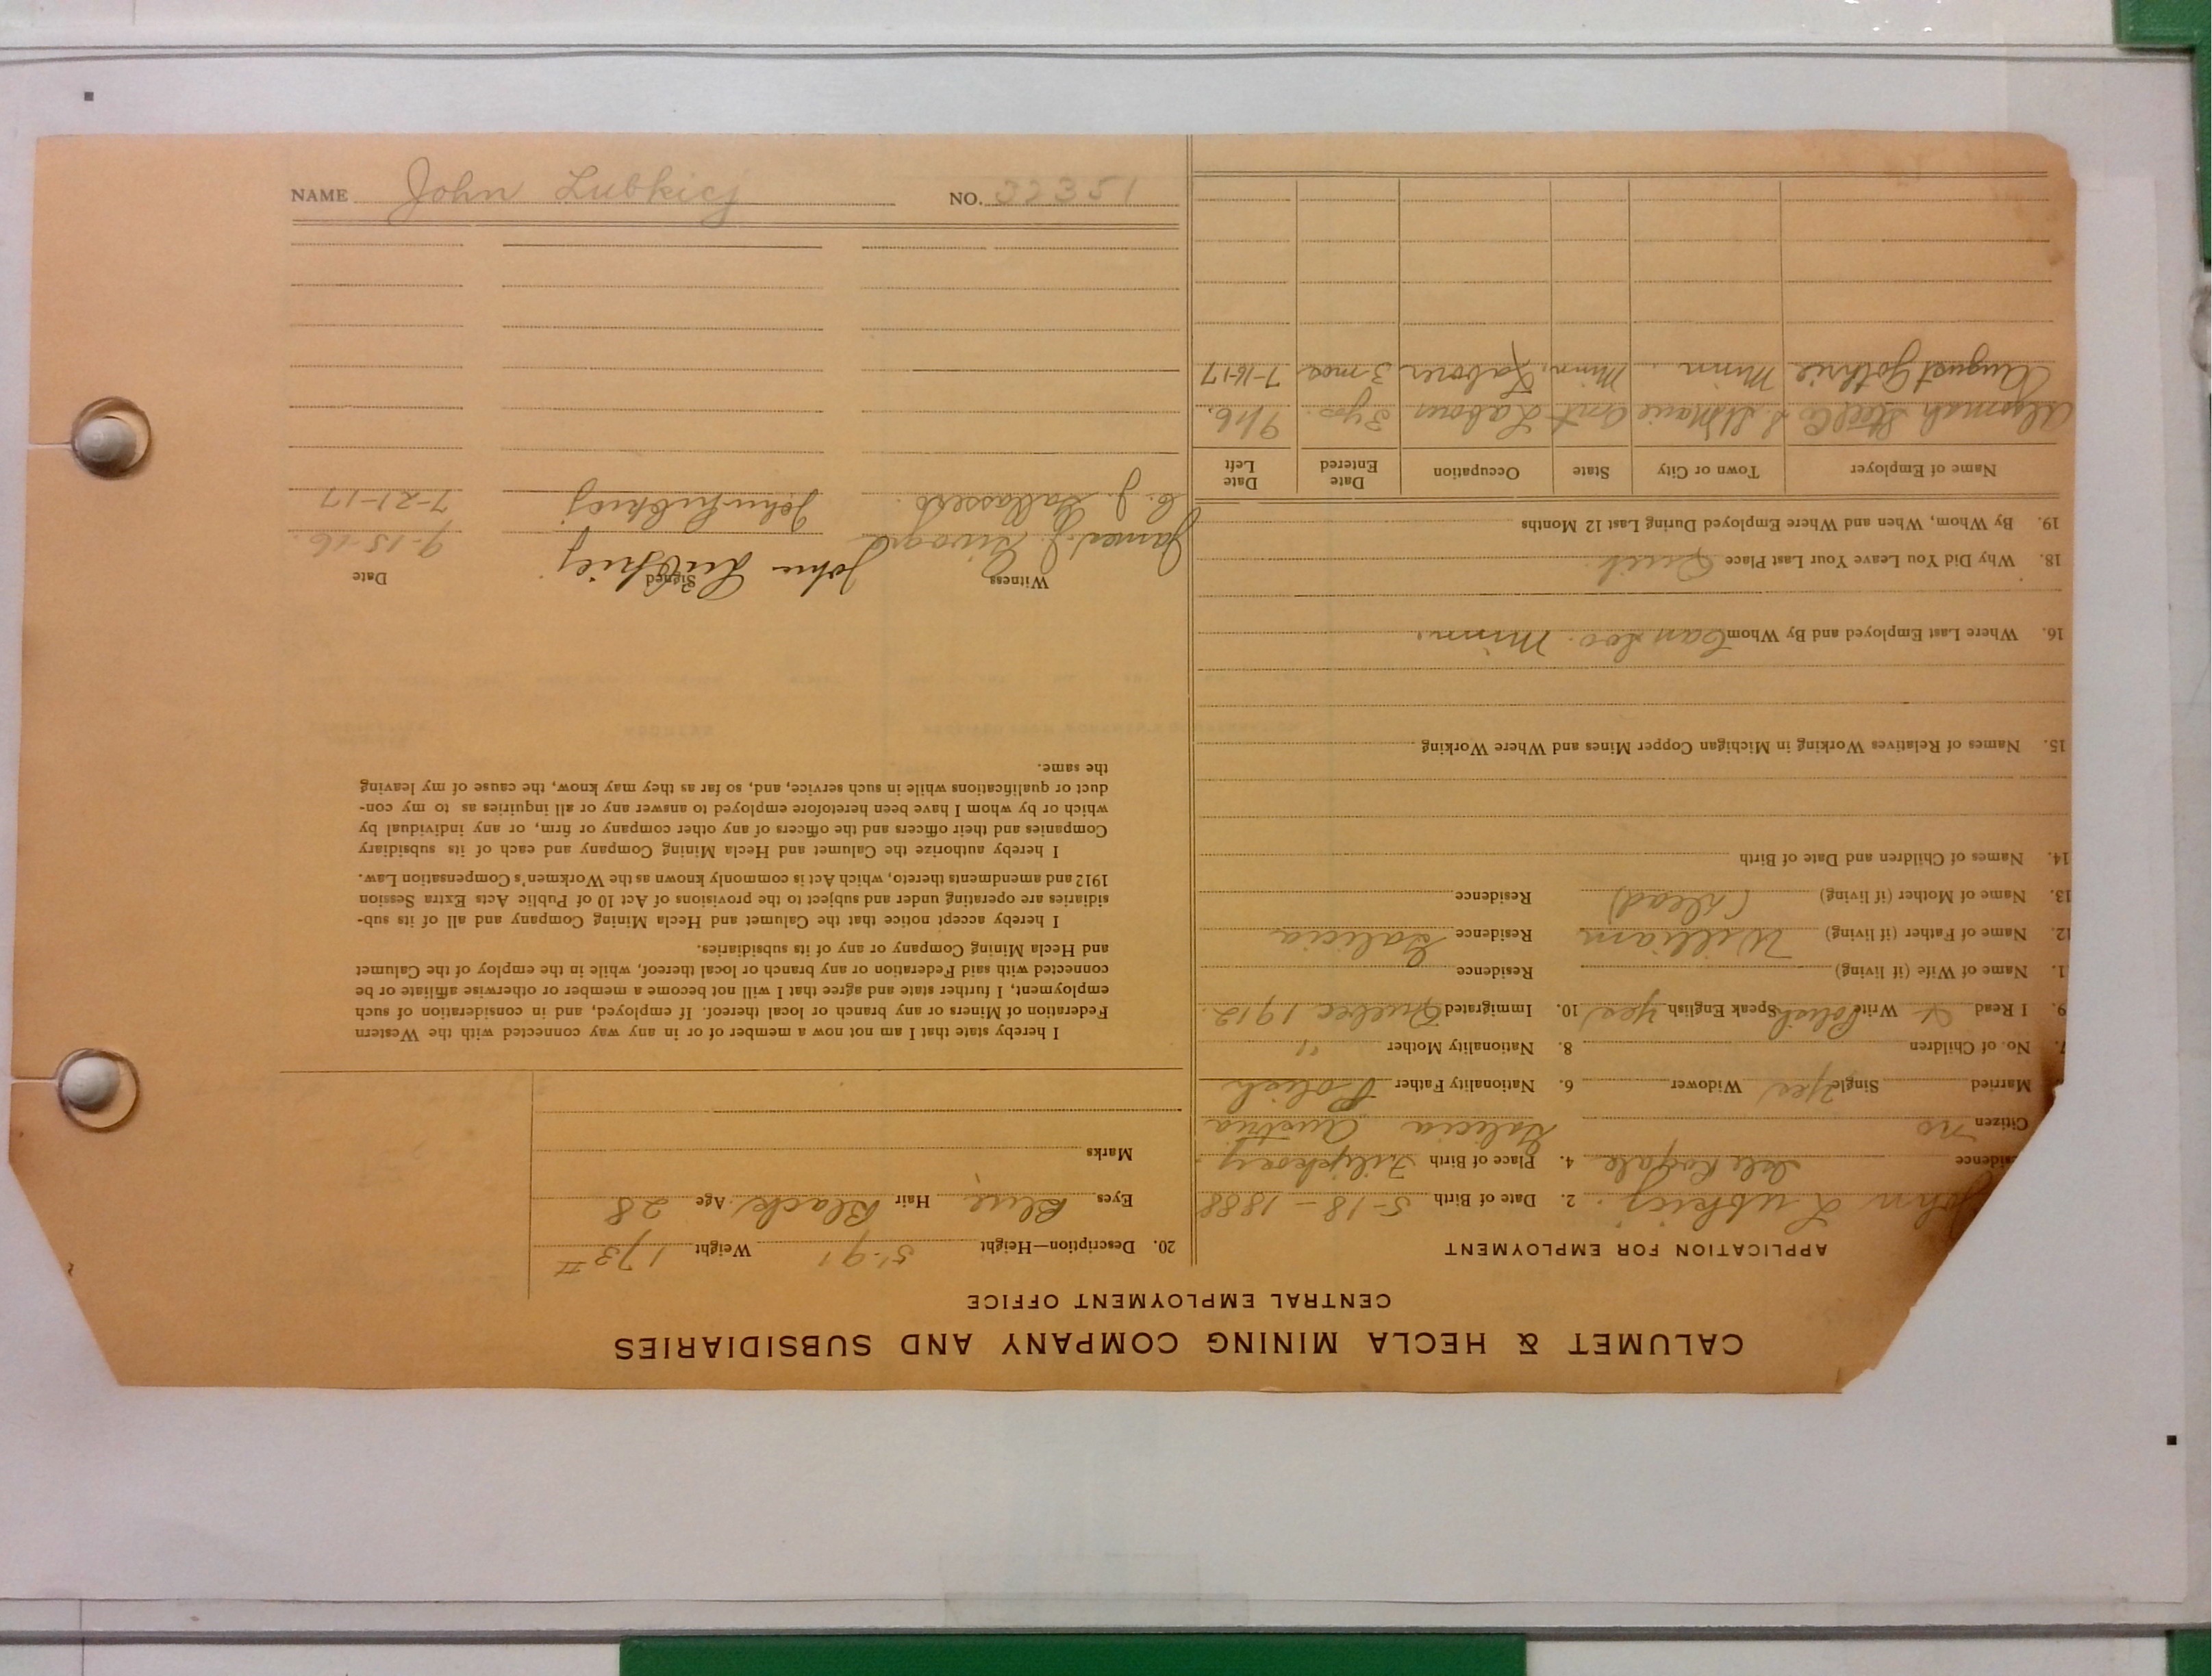 CALUMET & HECLA MINING COMPANY AND SUBSIDIARIES
CENTRAL EMPLOYMENT OFFICE
APPLICATION FOR EMPLOYMENT
John Lubkicj. 2. Date of Birth 5-18-1888
sidence Isle Royale 4. Place of Birth
Citizen no Galicia Austria
Married Single yes Widower 6. Nationality Father Polish
7. No. of Children 8. Nationality Mother "
9. I Read + Write Polish Speak English yes 10. Immigrated Quebec 1912.
1. Name of Wife (if living) Residence
12. Name of Father (if living) William Residence Galicia
13. Name of Mother (if living) (dead) Residence
14. Names of Children and Date of Birth
15. Names of Relatives Working in Michigan Copper Mines and Where Working
16. Where Last Employed and By Whom Can Soo. Minn.
18. Why Did You Leave Your Last Place Quit.
19. By Whom, When and Where Employed During Last 12 Months
Name of Employer Town or City State Occupation Date Entered Date Left
Algomah Steel Co S. St Marie Ont Labour 3 yrs. 9/16.
August Gothrie Minn. Minn. Laborer 3 mos 7-16-17
20. Description—Height 5'-9 1 Weight 173 #
Eyes Blue. Hair Black Age 28
Marks
I hereby state that I am not now a member of or in any way connected with the Western
Federation of Miners or any branch or local thereof. If employed, and in consideration of such
employment, I further state and agree that I will not become a member or otherwise affiliate or be
connected with said Federation or any branch or local thereof, while in the employ of the Calumet
and Hecla Mining Company or any of its subsidiaries.
I hereby accept notice that the Calumet and Hecla Mining Company and all of its sub-
sidiaries are operating under and subject to the provisions of Act 10 of Public Acts Extra Session
1912 and amendments thereto, which Act is commonly known as the Workmen's Compensation Law.
I hereby authorize the Calumet and Hecla Mining Company and each of its subsidiary
Companies and their officers and the officers of any other company or firm, or any individual by
which or by whom I have been heretofore employed to answer any or all inquiries as to my con-
duct or qualifications while in such service, and, so far as they may know, the cause of my leaving
the same.
Witness Signed Date
James J. John Lubkicj 9-15-16.
C. J. John Lubkicj 7-21-17
NAME John Lubkicj NO. 32351